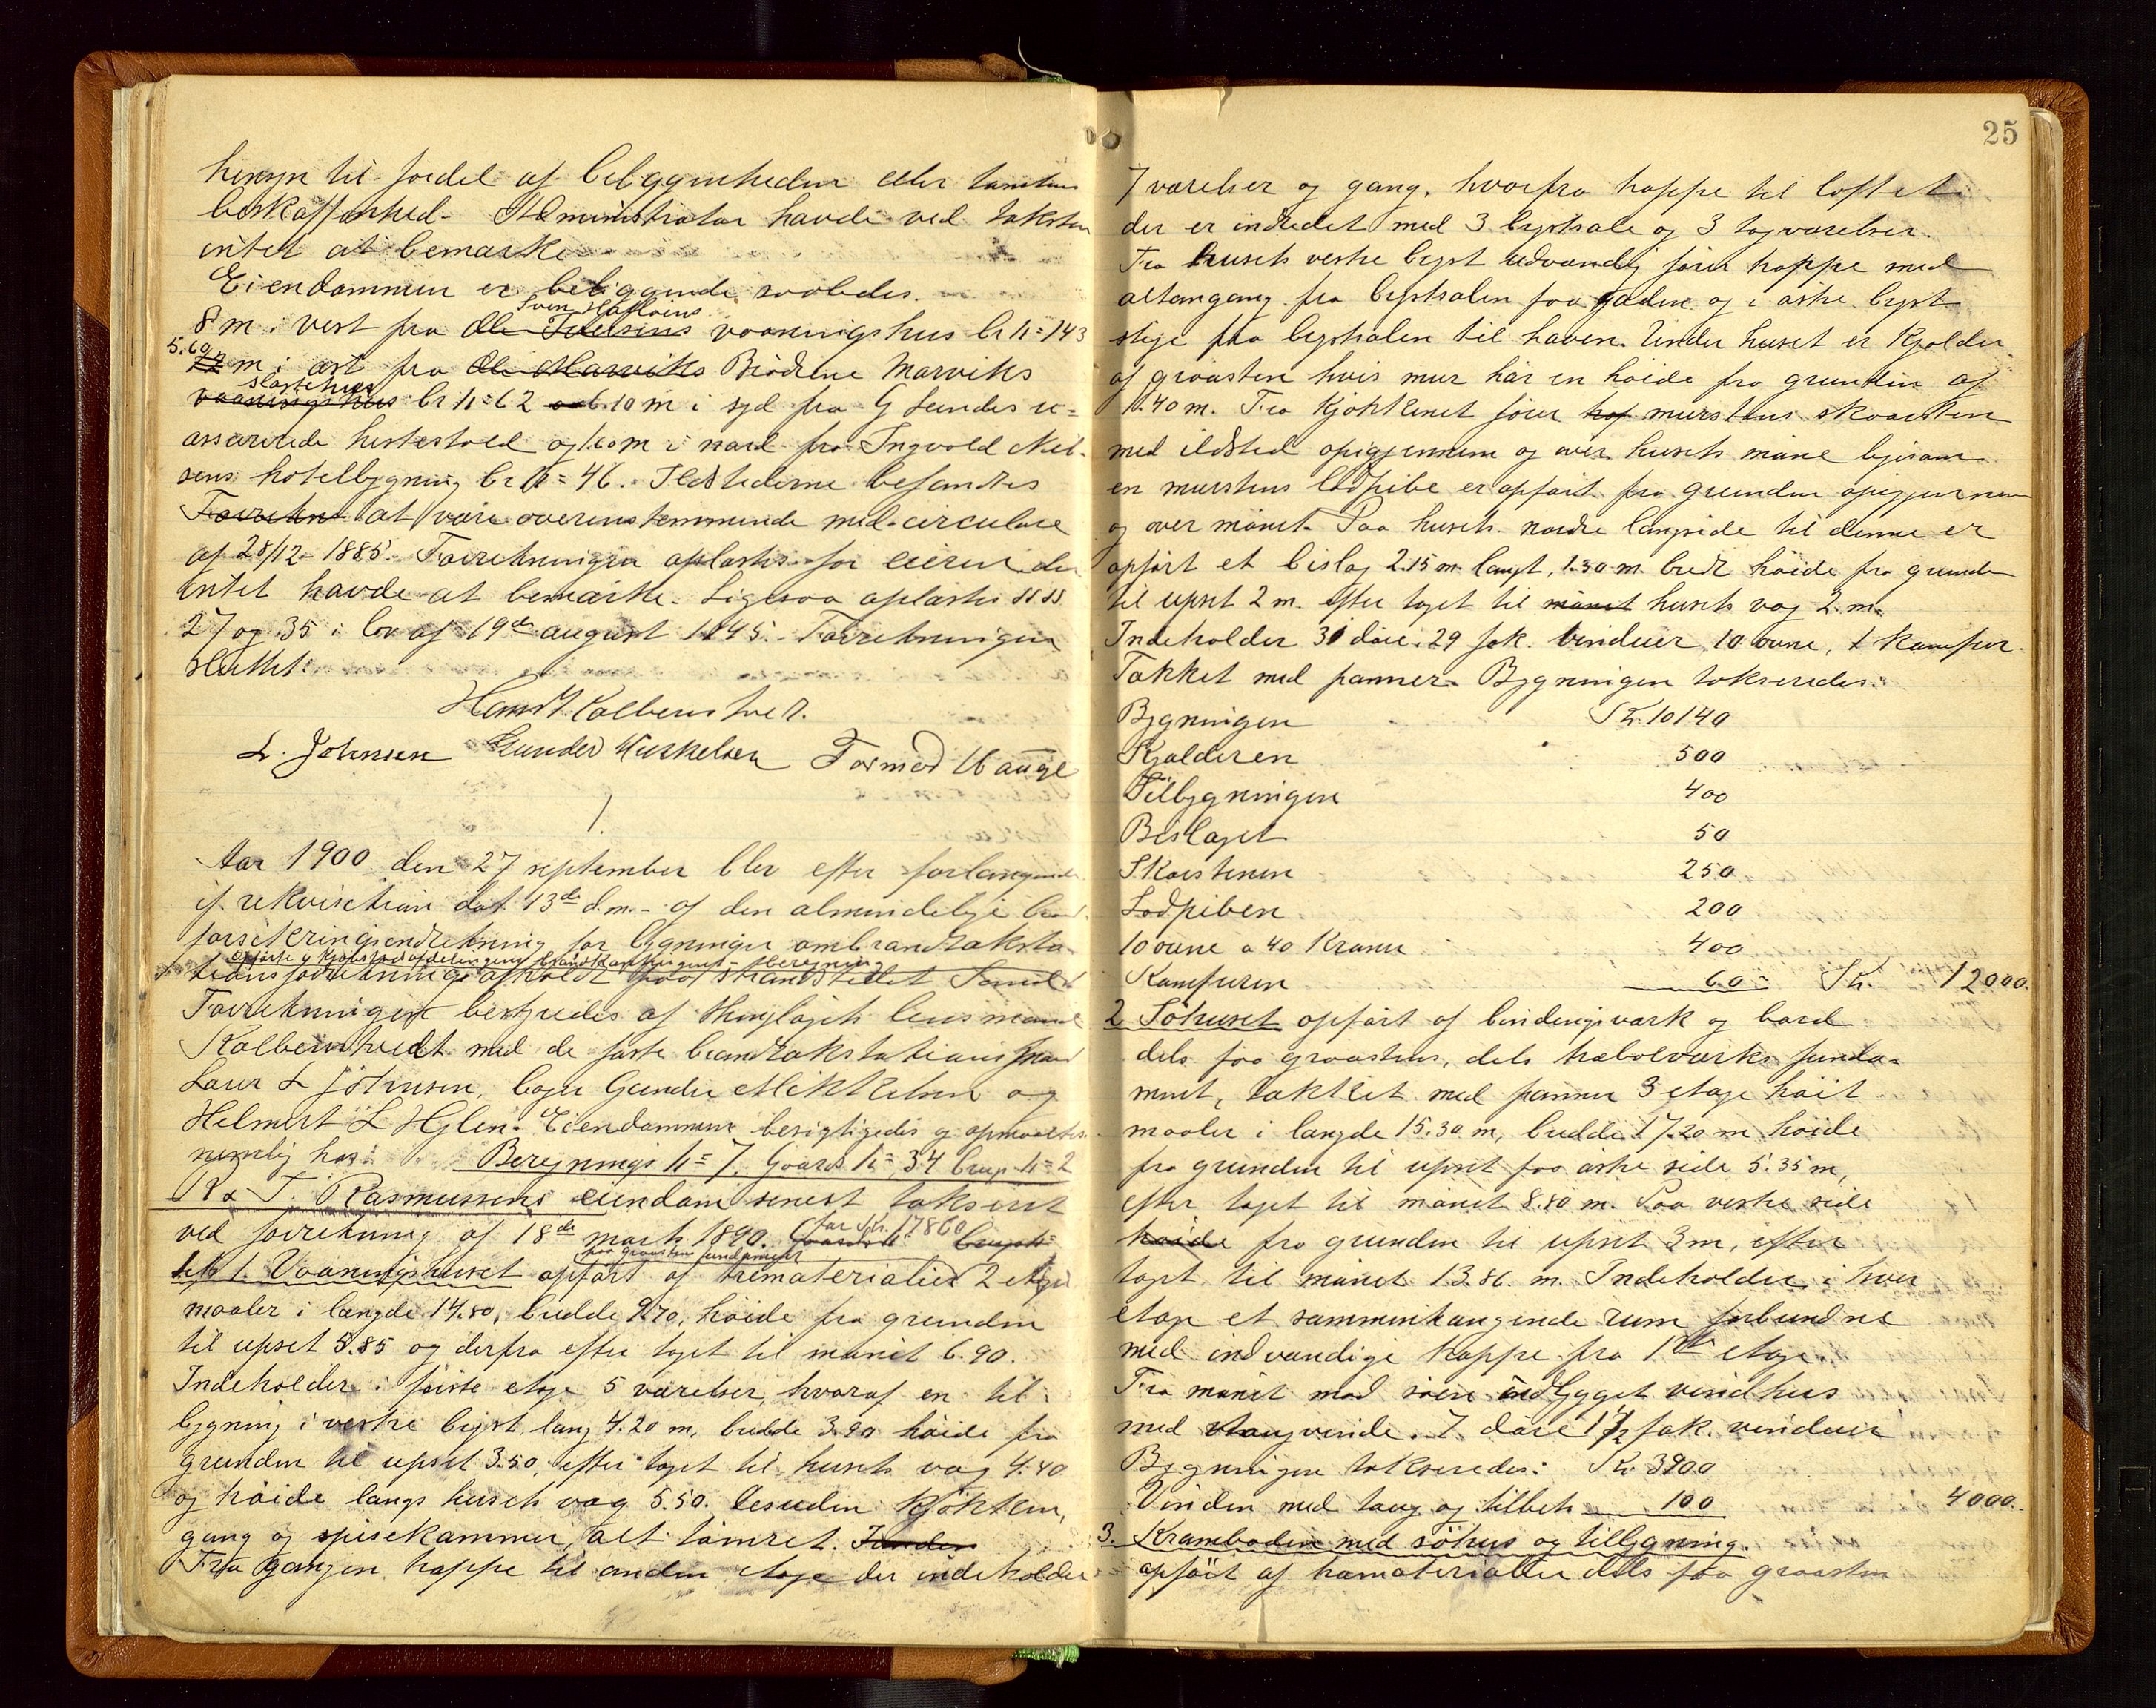 hensyn til fordel af bebyggenheden eller tomtens
beskaffenhed. Administrator havde ved taksten
intet at bemærke
Eiendommen er beliggende saaledes.
Sven Hatloens
8 m i vest fra Ole vaaningshus br n = 143
5.60
m i øst fra Ole Marviks Brødrene Marviks
slagtehus
vaaningshus br n = 62 6.10 m i syd fra G Lundes u-
assurerede hestestald og 1.60 m i nord fra Ingvold Niel-
sens hotelbygning br n = 46. Ildstederne befandtes
Forretn at være overensstemmende med circulære
af 28/12 - 1885. Forretningen oplæstes for eieren der
intet havde at bemærke. Ligesaa oplæstes §§
27 og 35 i lov af 19de august 1845. Forretningen
sluttet.
Hans Kolbenstvedt.
L. Johnsen Gunder Mikkelsen Tormod Hauge
1.
Aar 1900 den 27 september blev efter forlangende
if. rekvisition dat. 13de d.m. af den almindelige brand
forsikringsindretning for bygninger ombrandtaksta-
tionsforretning afholdt paa strandstedet Sand
Forretningen bestyredes af thinglagets lensmand
Kolbenstvedt med de faste brandtakstationsmænd
Laur L Johnsen, Gunder Mikkelsen og
Helmert L Hylen. Eiendommene besigtigedes og opmaaltes
nemlig hos: Beregnings n = 7. Gaards n = 34 brugs n = 2
T. Rasmussens eiendom senest takseret
for Kr. 17860
ved forretning af 18de marts 1890.
paa graastens fundament
1. Vaaningshuset opført af træmaterialier 2 etager
maaler i længde 14.80, bredde 9.70, høide fra grunden
til upset 5.85 og derfra efter taget til mønet 6.90.
Indeholder i første etage 5 værelser, hvoraf en til-
bygning i vestre bygst lang 4.20 m, bredde 3.90 høide fra
grunden til upset 3.50, efter taget til husets væg 4.40
og høide langs husets væg 5.50. desuden kjøkken,
gang og spisekammer, alt tømret.
Fra gangen trappe til anden etage der indeholder
25
7 værelser og gang, hvorfra trappe til loftet
der er indredet med 3 bystsale og 3 tagværelser.
Fra husets vestre byst udvendig fører trappe med
altangang fra bystsalen paa gaden og i østre byst
stige fra bystsalen til haven. Under huset er Kjælder
af graasten hvis mur har en høide fra grunden af
1.40 m. Fra Kjøkkenet fører murstens skorsten
med ildsted opigjennem og over husets møne ligesom
en murstens lodpibe er opført fra grunden opigjennem
og over mønet. Paa husets nordre langside til denne er
opført et bislag 2.15 m. langt, 1.30 m. bredt høide fra grunden
til upset 2 m. efter taget til mønet husets væg 2. m.
Indeholder 31 døre, 29 fak. vinduer, 10 ovne, 1 kamfur.
Tækket med panner. Bygningen takseredes:
Bygningen Kr. 10140
Kjælderen 500
Tilbygningen 400
Bislaget 50
Skorstenen 250
Lodpiben 200
10 ovne a 40 Kroner 400
Kamfuren 60 - Kr. 12000.
2 Søhuset opført af bindingsværk og bord
dels paa graastens, dels træbolværks funda-
ment, tækket med panner 3 etage høit
maaler i længde 15.30 m, bredde 17.20 m høide
fra grunden til upset paa østre side 5.35 m,
efter taget til mønet 8.80 m. Paa vestre side
høide fra grunden til upset 3 m, efter
taget til mønet 13.86 m. Indeholder i hver
etage et sammenhængende rum forbundne
med indvendige trappe fra 1ste etage.
Fra mønet mod søen indbygget vindhus
med vinde. 7 døre fak. vinduer
Bygningen takseredes: Kr 3900
Vinden med taug og tilbeh 100 4000.
3. Kramboden med søhus og tilbygning.
opført af træmaterialier dels paa graasten